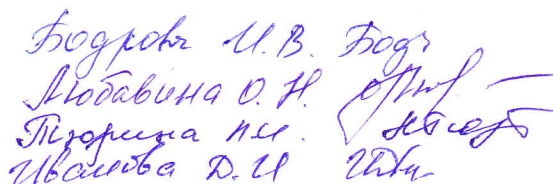 Бодровы И.В. Бодр
Любавина О.Н.
Тюрина Н.И.
Иванова Д.И